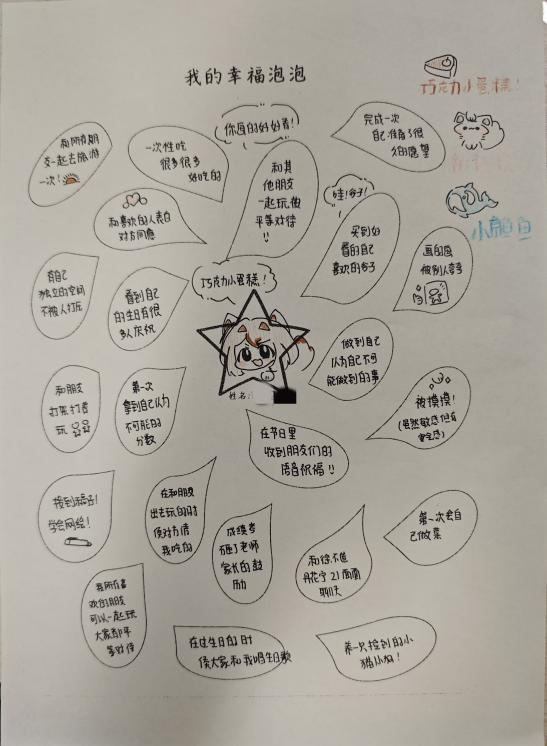 我的幸福泡泡
巧克力小蛋糕！
你画的好好看！
和所有朋
友一起去旅游
一次！
一次性吃
很多很多
好吃的
完成一次
自己准备了很
久的愿望
和其
他朋友
一起玩被
平等对待
!!
哇！谷子！
买到好
看的自己
喜欢的谷子
小鲨鱼
和喜欢的人表白
对方同意
画的画
被别人夸夸
有自己
独立的空间
不被人打扰
看到自己
的生日有很
多人庆祝
巧克力小蛋糕！
姓名：
做到自己
认为自己不可
能做到的事
和朋友
打开打着
玩
第一次
拿到自己认为
不可能的
分数
被摸摸！
(虽然敏感但有
安全感)
在节日里
收到朋友们的
语音祝福!!
接到稿子！
学会网绘！
在和朋友
出去玩的时
候对方请
我吃的
成绩考
好了老师
家长的鼓
励
聊天
第一次会自
己做菜
我所有喜
欢的朋友
可以一起玩
大家都平
等对待
在过生日的时
候大家和我唱生日歌
第一只捡到的小
猫小狗！